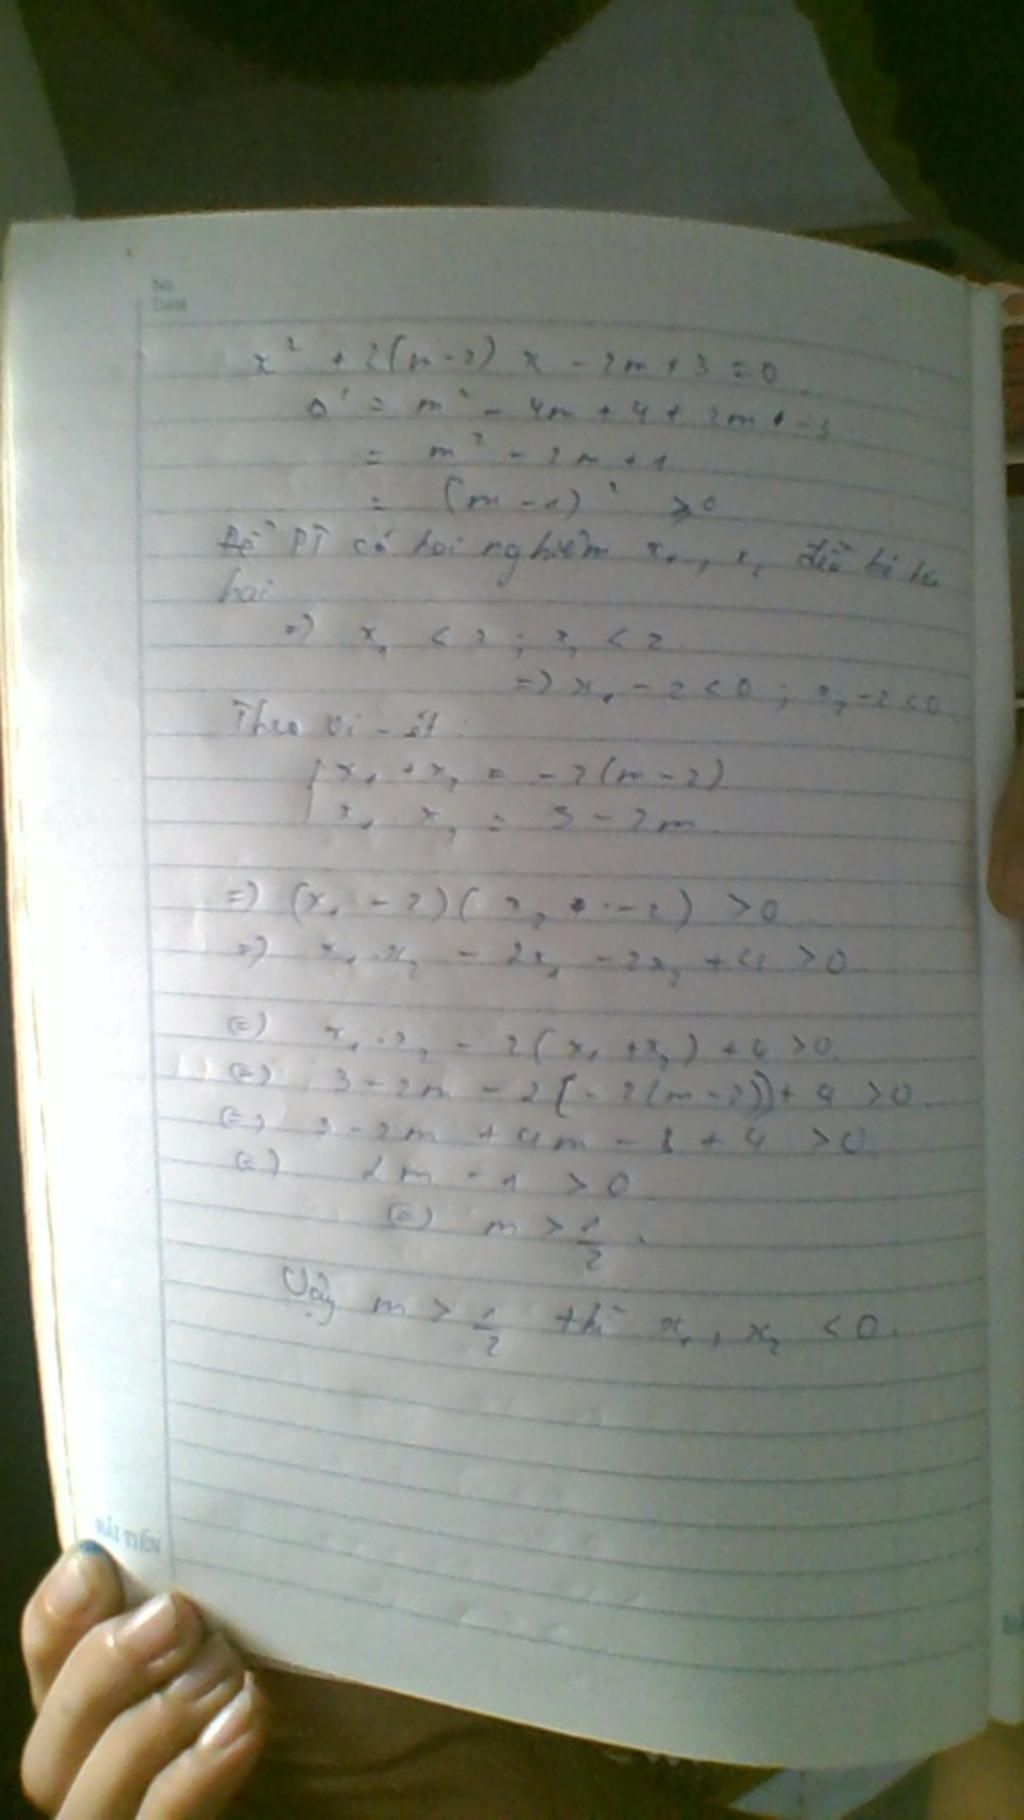 No
Date
x² + 2(m-2) x - 2m + 3 = 0
Δ' = m² - 4m + 4 + 2m - 3
= m² - 2m + 1
= (m - 1)² ≥ 0
Để PT có hai nghiệm x₁, x₂ đều bé hơn
hai
=) x₁ < 2 ; x₂ < 2
=) x₁ - 2 < 0 ; x₂ - 2 < 0
Theo Vi-ét :
{ x₁ + x₂ = -2(m-2)
x₁ . x₂ = 3 - 2m
=) (x₁ - 2)(x₂ - 2) > 0
=) x₁.x₂ - 2x₁ - 2x₂ + 4 > 0
(=) x₁.x₂ - 2(x₁ + x₂) + 4 > 0
(=) 3 - 2m - 2[-2(m-2)] + 4 > 0
(=) 3 - 2m + 4m - 8 + 4 > 0
(=) 2m - 1 > 0
(=) m > 1/2 .
Vậy m > 1/2 thì x₁, x₂ < 0.
HẢI TIẾN